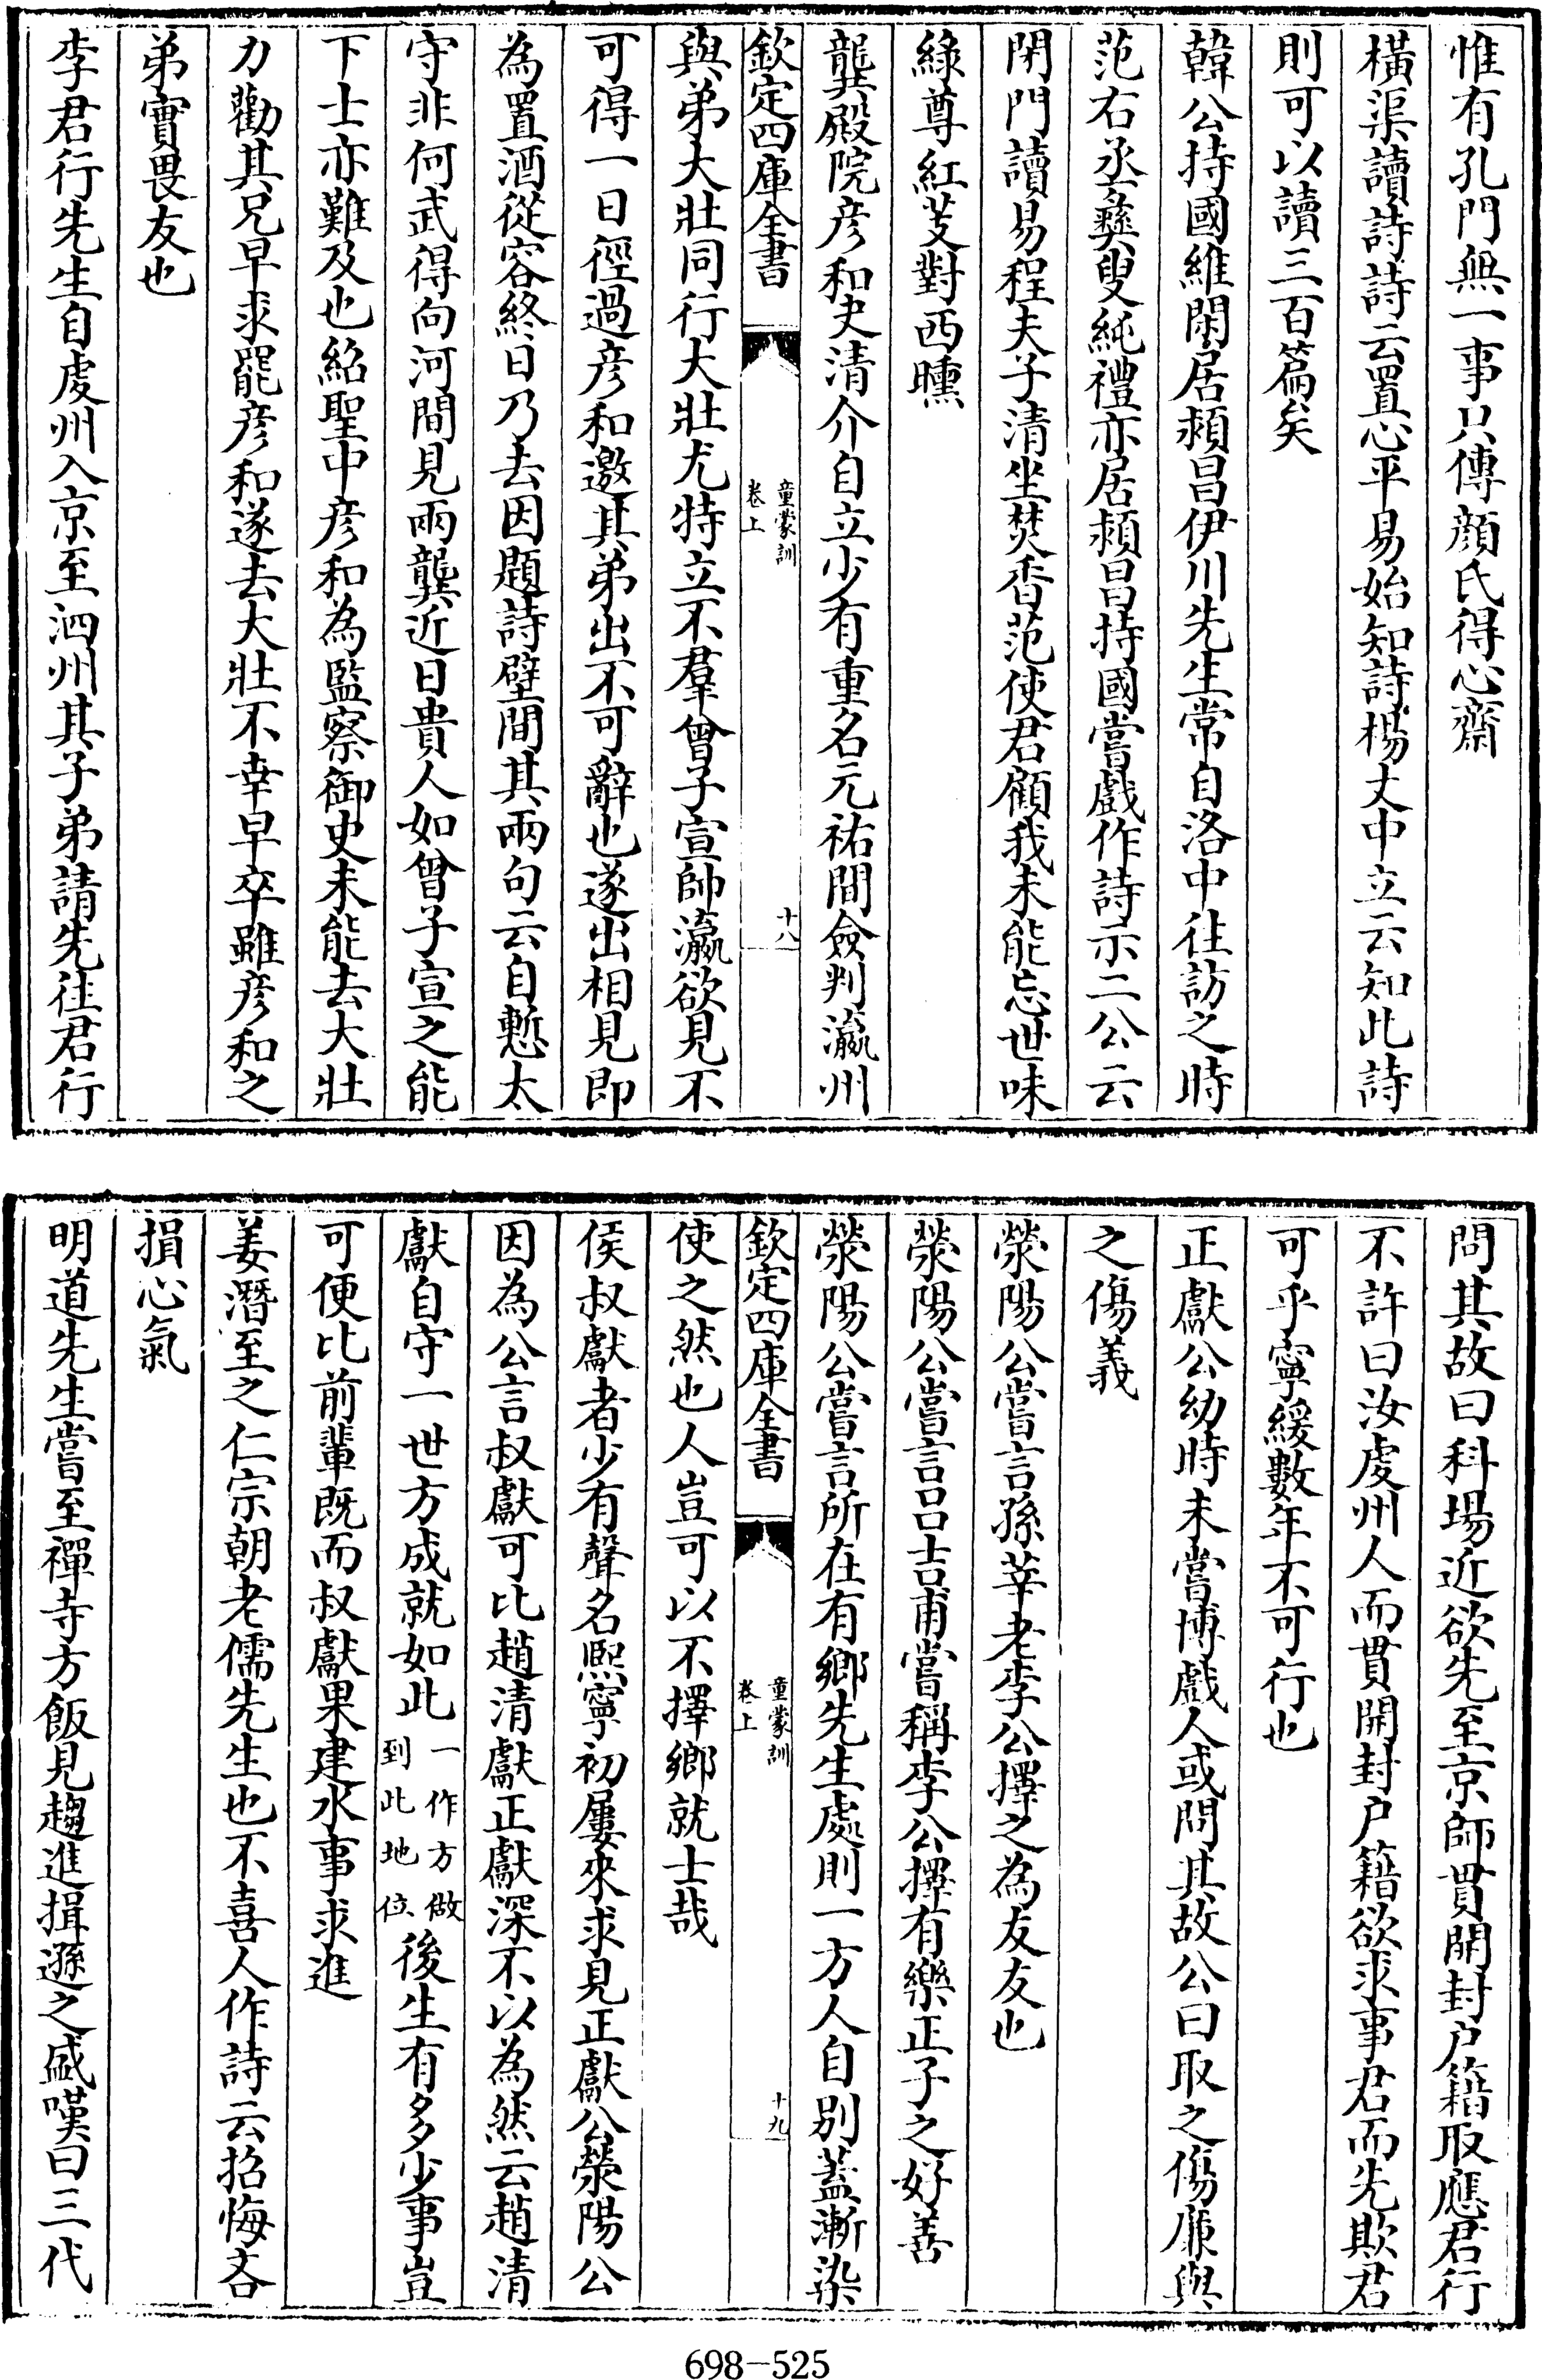 惟有孔門無一事只傳顔氏得心齋
橫渠讀詩詩云置心平易始知詩楊丈中立云知此詩
則可以讀三百篇矣
韓公持國維閑居潁昌伊川先生常自洛中往訪之時
范右丞彝叟純禮亦居潁昌持國嘗戲作詩示二公云
閉門讀易程夫子清坐焚香范使君顧我未能忘世味
綠尊紅芰對西曛
龔殿院彦和夬清介自立少有重名元祐間僉判瀛州
欽定四庫全書
童蒙訓
卷上
十八
與弟大壯同行大壯尤特立不羣曾子宣帥瀛欲見不
可得一日徑過彦和邀其弟出不可辭也遂出相見即
為置酒從容終日乃去因題詩壁間其兩句云自慙太
守非何武得向河間見兩龔近日貴人如曾子宣之能
下士亦難及也紹聖中彦和為監察御史未能去大壯
力勸其兄早求罷彦和遂去大壯不幸早卒雖彦和之
弟實畏友也
李君行先生自虔州入京至泗州其子弟請先往君行
問其故曰科場近欲先至京師貫開封户籍取應君行
不許曰汝虔州人而貫開封户籍欲求事君而先欺君
可乎寧緩數年不可行也
正獻公幼時未嘗博戲人或問其故公曰取之傷廉與
之傷義
滎陽公嘗言孫莘老李公擇之為友友也
滎陽公嘗言呂吉甫嘗稱李公擇有樂正子之好善
滎陽公嘗言所在有鄉先生處則一方人自别蓋漸染
欽定四庫全書
童蒙訓
卷上
十九
使之然也人豈可以不擇鄉就士哉
侯叔獻者少有聲名熙寧初屢來求見正獻公滎陽公
因為公言叔獻可比趙清獻正獻深不以為然云趙清
獻自守一世方成就如此一作方做到此地位後生有多少事豈
可便比前輩既而叔獻果建水事求進
姜潛至之仁宗朝老儒先生也不喜人作詩云招悔吝
損心氣
明道先生嘗至禪寺方飯見趨進揖遜之盛嘆曰三代
698-525